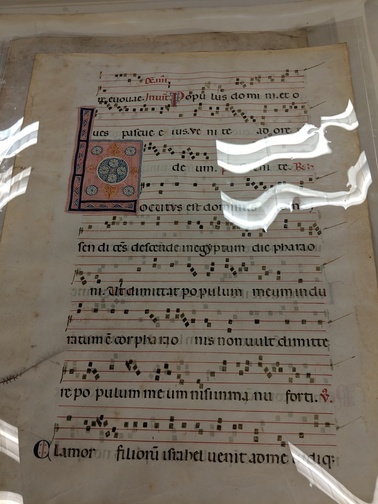 euouae. Popu lus domi ni. et o
ues pascue e ius. ve ni te ado
de um.
Locutus est domin
descende in egyptum dic pharao
ni. Ut dimittat populum meum indu
ratum ē cor pharao nis non vult dimitte
re po pulum me um nisi in ma nu forti. ℣.
Clamor filiorū israhel venit ad me